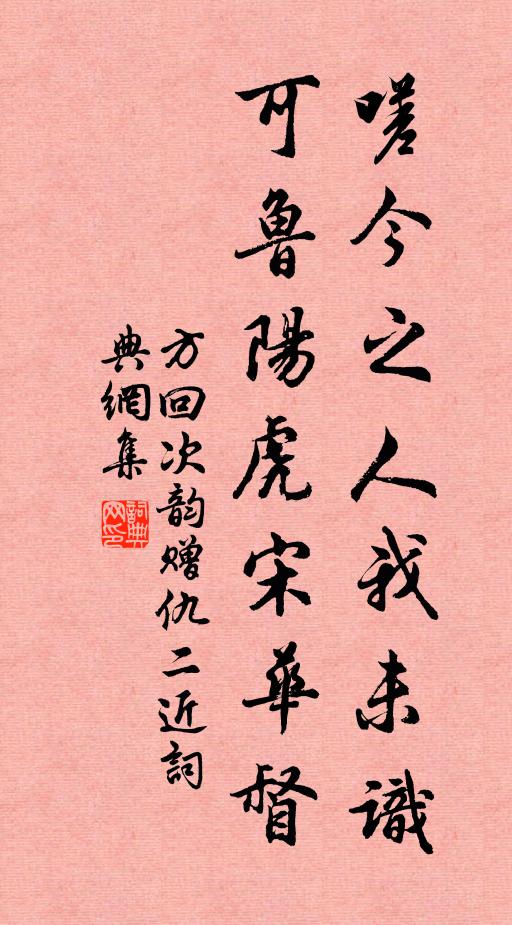 嗟今之人我未識
可魯陽虎宋華督
方回次韵赠仇二近詞
典網集
詞典網印